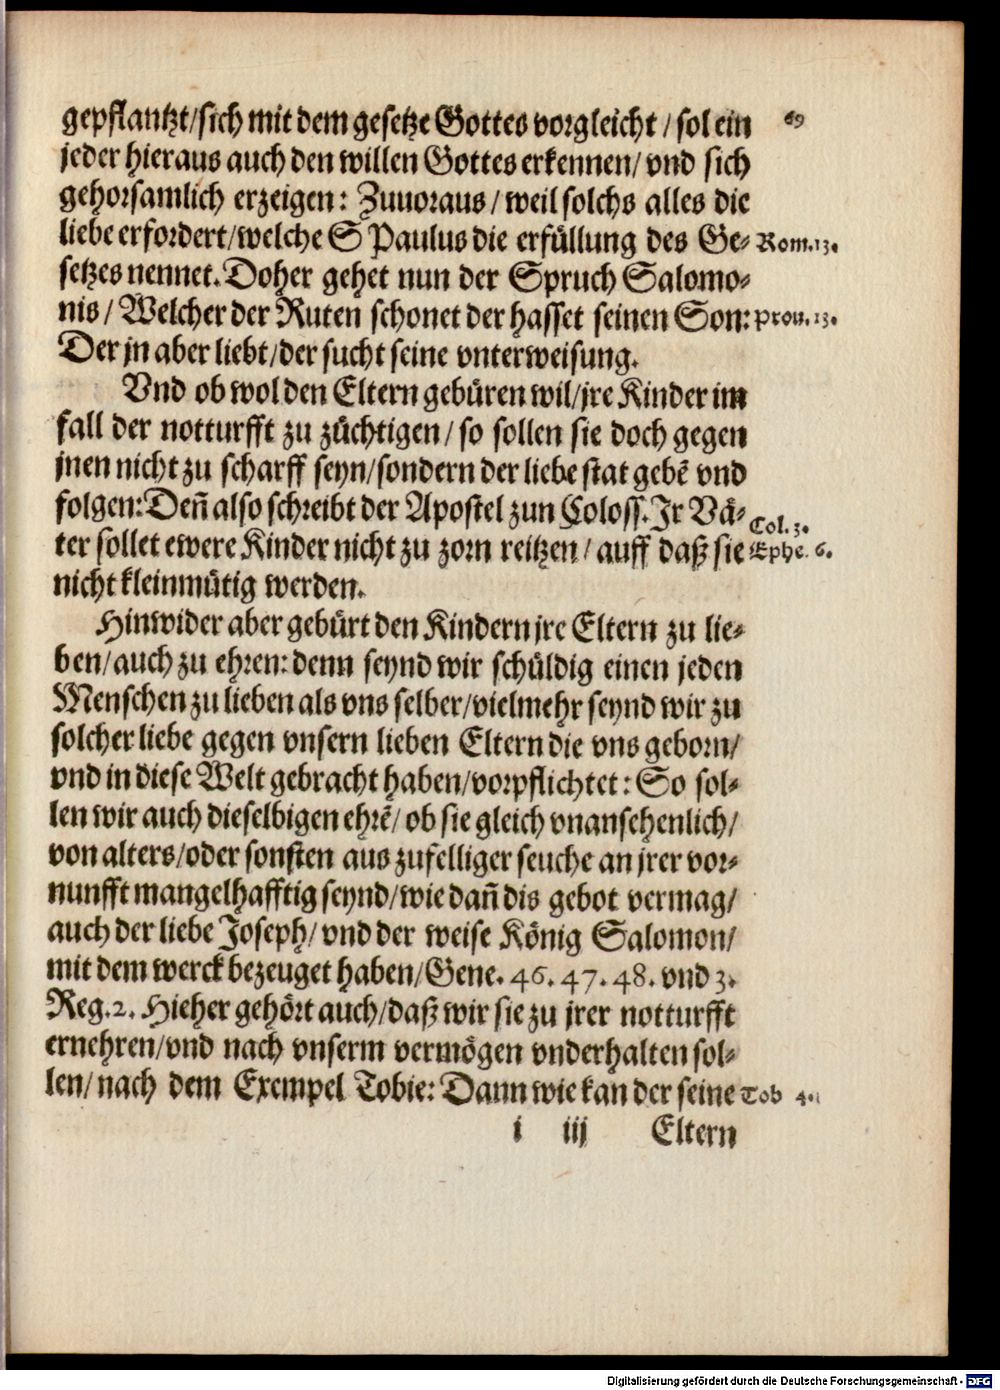 gepflantzt/sich mit dem gesetze Gottes vorgleicht / sol ein 69
jeder hieraus auch den willen Gottes erkennen/ vnd sich
gehorsamlich erzeigen: Zuuoraus / weil solchs alles die
liebe erfordert/welche S Paulus die erfüllung des Ge- Rom.13.
setzes nennet. Doher gehet nun der Spruch Salomo-
nis / Welcher der Ruten schonet der hasset seinen Son: prou. 13.
Der jn aber liebt/der sucht seine vnterweisung.
Vnd ob wol den Eltern gebüren wil/jre Kinder im
fall der notturfft zu züchtigen / so sollen sie doch gegen
jnen nicht zu scharff seyn/sondern der liebe stat gebẽ vnd
folgen: Deñ also schreibt der Apostel zun Coloss. Jr Vä- Col. 3.
ter sollet ewere Kinder nicht zu zorn reitzen / auff daß sie Ephe. 6.
nicht kleinmütig werden.
Hinwider aber gebürt den Kindern jre Eltern zu lie-
ben/auch zu ehren: denn seynd wir schüldig einen jeden
Menschen zu lieben als vns selber/vielmehr seynd wir zu
solcher liebe gegen vnsern lieben Eltern die vns geborn/
vnd in diese Welt gebracht haben/vorpflichtet: So sol-
len wir auch dieselbigen ehrẽ/ ob sie gleich vnansehenlich/
von alters/oder sonsten aus zufelliger seuche an jrer vor-
nunfft mangelhafftig seynd/wie dañ dis gebot vermag/
auch der liebe Joseph/ vnd der weise König Salomon/
mit dem werck bezeuget haben/Gene. 46. 47. 48. vnd 3.
Reg. 2. Hieher gehört auch/daß wir sie zu jrer notturfft
ernehren/vnd nach vnserm vermögen vnderhalten sol-
len/ nach dem Exempel Tobie: Dann wie kan der seine Tob 4.
i iij Eltern
Digitalisierung gefördert durch die Deutsche Forschungsgemeinschaft - DFG